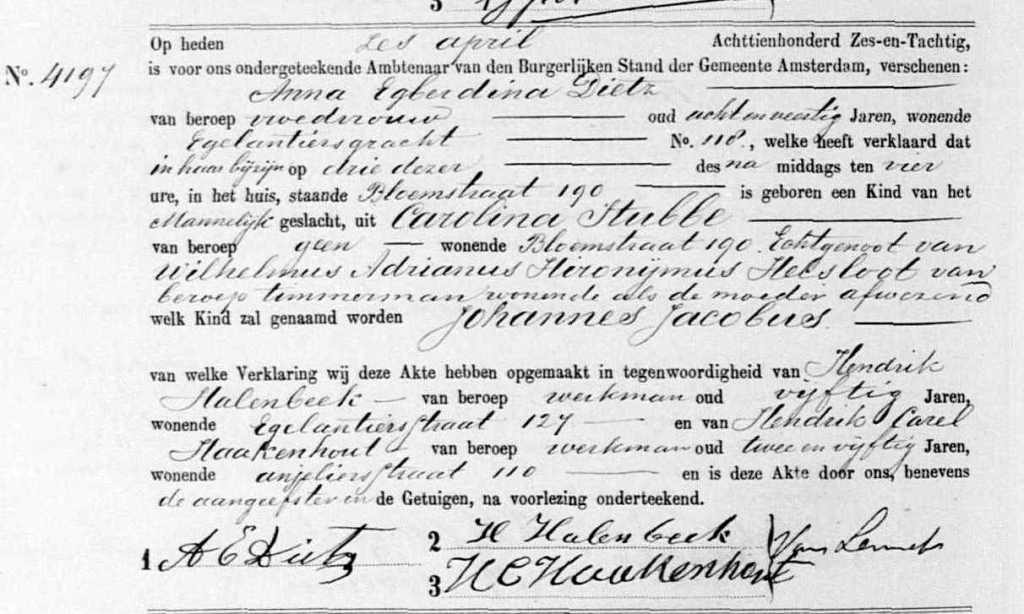 3
Op heden zes april Achttienhonderd Zes-en-Tachtig,
No. 4197 is voor ons ondergeteekende Ambtenaar van den Burgerlijken Stand der Gemeente Amsterdam, verschenen:
Anna Egberdina Dietz
van beroep vroedvrouw oud acht en veertig Jaren, wonende
Egelantiersgracht No. 118., welke heeft verklaard dat
in haar bijzijn op drie dezer des na middags ten vier
ure, in het huis, staande Bloemstraat 190 is geboren een Kind van het
Mannelijk geslacht, uit Carolina Stubbe
van beroep geen wonende Bloemstraat 190. Echtgenoot van
Wilhelmus Adrianus Hironijmus Heesloot van
beroep timmerman wonende als de moeder afwezend
welk Kind zal genaamd worden Johannes Jacobus.
van welke Verklaring wij deze Akte hebben opgemaakt in tegenwoordigheid van Hendrik
Halenbeek van beroep werkman oud vijftig Jaren,
wonende Egelantiersstraat 127 en van Hendrik Carel
Haakenhout van beroep werkman oud twee en vijftig Jaren,
wonende anjeliersstraat 110 en is deze Akte door ons, benevens
de aangeefster en de Getuigen, na voorlezing onderteekend.
1 A E Dietz 2 H Halenbeek Van Lennep
3 H C Haakenhout